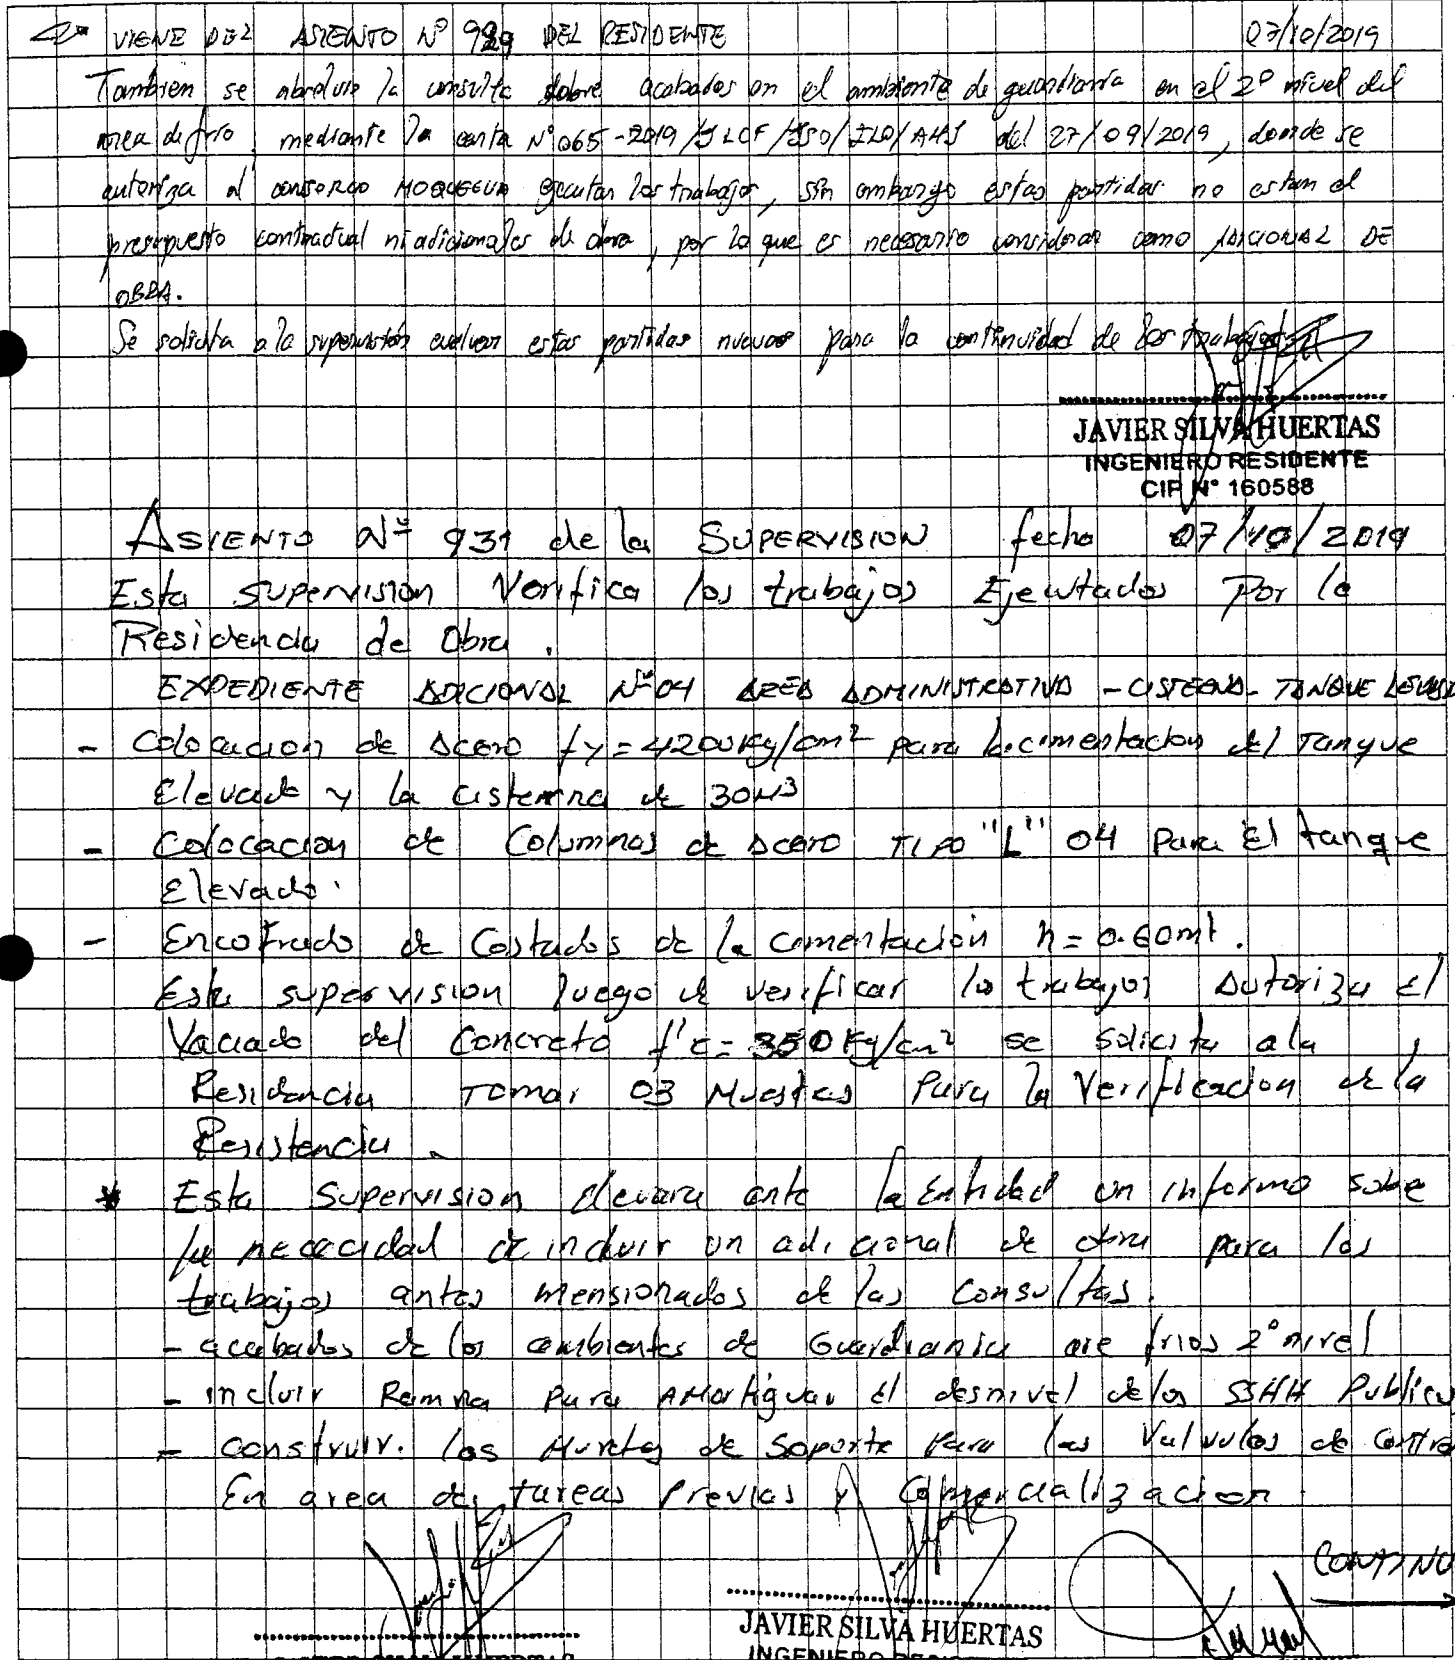 VIENE DEL ASIENTO Nº 929 DEL RESIDENTE 07/10/2019
Tambien se absolvio la consulta sobre acabados en el ambiente de guardiania en el 2º nivel del
area de frio, mediante la carta Nº 065-2019/JLCF/JSO/ILO/AHS del 27/09/2019, donde se
autoriza al consorcio MOQUEGUA ejecutar los trabajos, sin embargo estas partidas no estan el
presupuesto contractual ni adicionales de obra, por lo que es necesario considerar como ADICIONAL DE
OBRA.
Se solicita a la supervisión evaluar estas partidas nuevas para la continuidad de los trabajos.
JAVIER SILVA HUERTAS
INGENIERO RESIDENTE
CIP N° 160588
ASIENTO Nº 931 de la SUPERVISION fecha 07/10/2019
Esta SUPERVISION Verifica los trabajos Ejecutados Por la
Residencia de Obra.
EXPEDIENTE ADICIONAL Nº 04 AREA ADMINISTRATIVA - CISTERNA - TANQUE
- Colocacion de Acero fy = 4200 Kg/cm² para la cimentacion del Tanque
Elevado y la cisterna de 30M³
- Colocacion de Columnas de Acero TIPO "L" 04 Para El tanque
Elevado.
- Encofrado de Costados de la cimentacion h = 0.60mt.
Esta supervision luego de verificar los trabajos Autoriza el
Vaciado del Concreto f'c = 350 Kg/cm² se solicita a la
Residencia Tomar 03 Muestras Para la Verificacion de la
Resistencia.
* Esta Supervision elevara ante la Entidad un informe sobre
la necacidad de incluir un adicional de obra para los
trabajos antes mensionados de las Consultas.
- acabados de los ambientes de Guardiania are frios 2º nivel
- incluir Rampa Para Amortiguar El desnivel de los SSHH Publico
- construir. los Muretes de Soporte Para las Valvulas de Contro
En area de tareas Previas y Comercializacion
CONTINU
JAVIER SILVA HUERTAS